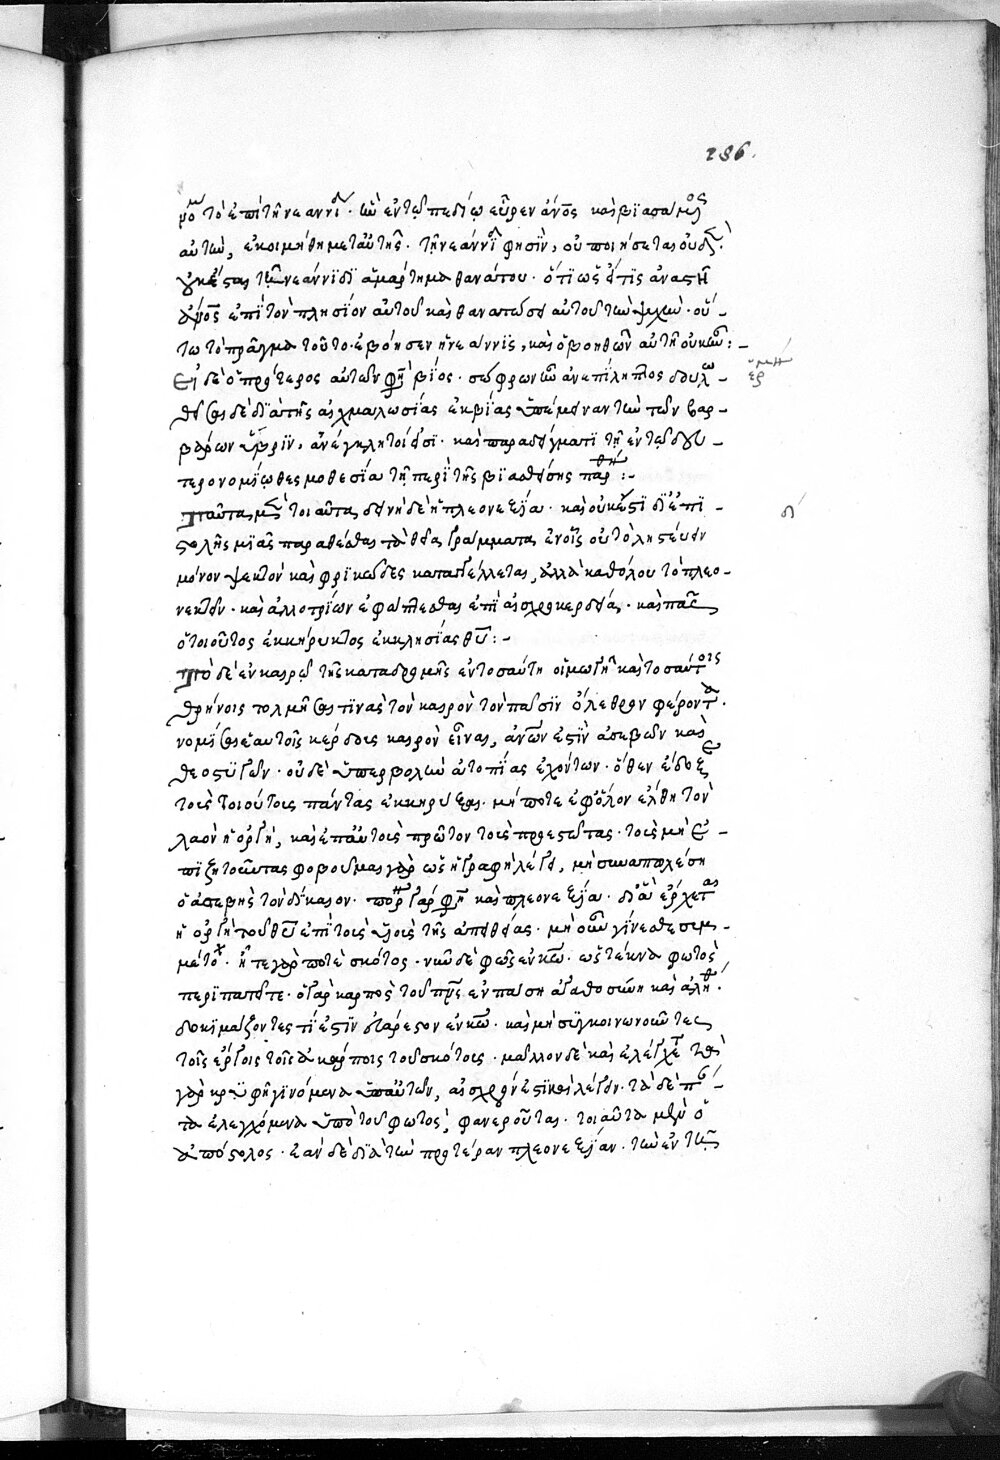 286.
μο τὸ ἐπὶ τῇ νεάννι· ἣν ἐν τῷ πεδίῳ εὗρεν ἄνος καὶ βιασάμος
αὐτὴν, ἐκοιμήθη μετ αὐτῆς· τῇ νεάννι φησὶν, οὐ ποιήσεται οὐδὲν·
οὐκ ἔσται τῇ νεάννιδι ἁμάρτημα θανάτου· ὅτι ὡς εἴ τις ἀναστῇ
ἄνος ἐπὶ τὸν πλησίον αὐτοῦ καὶ θανατώσει αὐτοῦ τὴν ψυχὴν· οὕ-
τω τὸ πρᾶγμα τοῦτο· ἐβόησεν ἡ νεάννις, καὶ ὁ βοηθῶν αὐτῇ οὐκ ἦν:-
Εἰ δὲ ὁ πρότερος αὐτῶν βίος· σώφρων ἦν ἀνεπίληπτος δουλω-
θεῖσαι δὲ διὰ τῆς αἰχμαλωσίας ἐκ βίας ὑπέμειναν τὴν τῶν βαρ-
βάρων ὕβριν, ἀνέγκλητοί εἰσι· καὶ παραδείγματι τῇ ἐν τῷ δευ-
τερονομίῳ θεσμοθεσία τῇ περὶ τῆς βιασθείσης παρθ:-
Ταῦτα μὲν τοιαῦτα, δεινὴ δὲ ἡ πλεονεξία· καὶ οὐκ ἔστι δι ἐπι-
στολῆς μιᾶς παραθέσθαι τὰ θεῖα γράμματα ἐν οἷς οὐ τὸ ληστεύειν
μόνον φευκτὸν καὶ φρικῶδες καταγγέλλεται, ἀλλὰ καθόλου τὸ πλεο-
νεκτεῖν· καὶ ἀλλοτρίων ἐφάπτεσθαι ἐπὶ αἰσχροκερδεία· καὶ πᾶς
ὁ τοιοῦτος ἐκκήρυκτος ἐκκλησίας θῦ:-
Τὸ δὲ ἐν καιρῷ τῆς καταδρομῆς ἐν τοσαύτη οἰμωγῇ καὶ τοσούτοις
θρήνοις τολμῆσαι τινὰς τὸν καιρὸν τὸν πᾶσιν ὄλεθρον φέροντα·
νομίσαι ἑαυτοῖς κέρδους καιρὸν εἶναι, ἀνων ἐστὶν ἀσεβῶν καὶ
θεοστυγῶν· οὐδὲ ὑπερβολὴν ἀτοπίας ἐχόντων· ὅθεν ἔδοξε
τοὺς τοιούτους πάντας ἐκκηρύξαι· μή ποτε ἐφ ὅλον ἔλθη τὸν
λαὸν ἡ ὀργὴ, καὶ ἐπ αὐτοὺς πρῶτον τοὺς προεστῶτας· τοὺς μὴ ἐ-
πιζητοῦντας φοβοῦμαι γὰρ ὡς ἡ γραφὴ λέγει, μὴ συναπολέση
ὁ ἀσεβὴς τὸν δίκαιον· πορ γάρ φη καὶ πλεονεξία· δι ἃ ἔρχεται
ἡ ὀργὴ τοῦ θῦ ἐπὶ τοὺς υἱοὺς τῆς ἀπειθείας· μὴ οὖν γίνεσθε συμ-
μέτοχ· ἦτε γὰρ ποτὲ σκότος· νῦν δὲ φῶς ἐν κῶ· ὡς τέκνα φωτὸς
περιπατεῖτε· ὁ γὰρ καρπὸς τοῦ πνς ἐν πάση ἀγαθοσύνη καὶ ἀληθ·
δοκιμάζοντες τί ἐστὶν εὐάρεστον ἐν κῶ· καὶ μὴ συγκοινωνοῦντες
τοῖς ἔργοις τοῖς ἀκάρποις τοῦ σκότους· μᾶλλον δὲ καὶ ἐλέγχετε τὰ
γὰρ κρυφῇ γινόμενα ὑπ αὐτῶν, αἰσχρόν ἐστι καὶ λέγειν· τὰ δὲ πά-
τα ἐλεγχόμενα ὑπὸ τοῦ φωτὸς, φανεροῦται· τοιαῦτα μὲν ὁ
ἀπόστολος· ἐὰν δὲ διὰ τὴν προτέραν πλεονεξίαν· τὴν ἐν τῇ